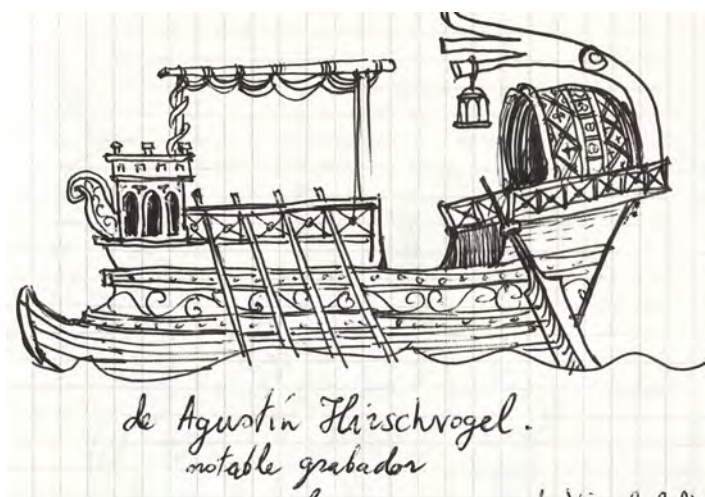 de Agustín Hirschvogel.
notable grabador